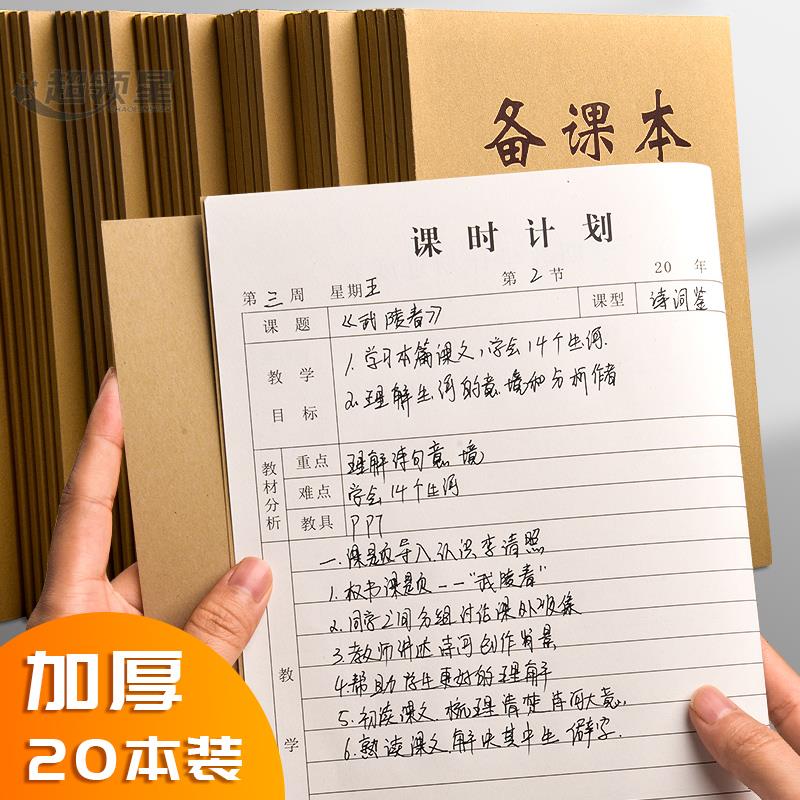 超领星
备课本
课时计划
第三周 星期五 第2节 20 年
课题 《武陵春》 课型 诗词鉴
教学目标
1. 学习本篇课文,学会14个生词.
2. 理解生词的意境和分析作者
教材分析
重点 理解诗句意境
难点 学会14个生词
教具 PPT
教学
一. 课题导入,认识李清照
1. 板书课题——"武陵春"
2. 同学之间分组讨论课外收集
3. 教师讲述诗词创作背景
4. 帮助学生更好的理解
5. 初读课文,梳理清楚诗词大意.
6. 熟读课文,解决其中生僻字.
加厚
20本装